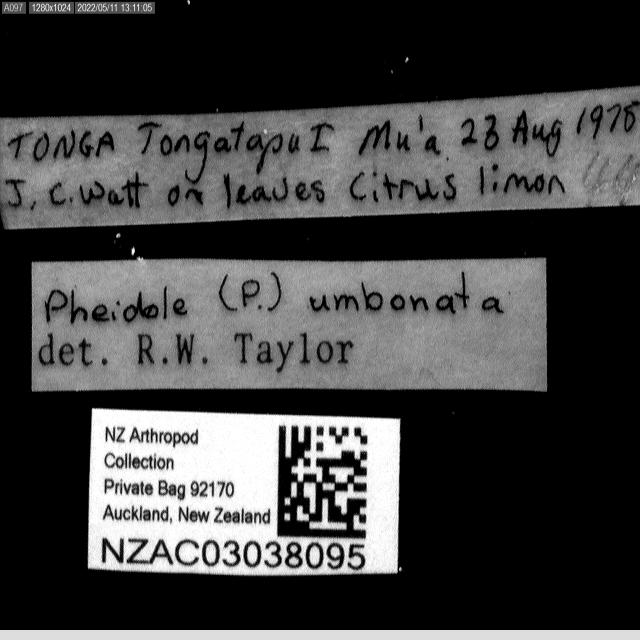 A097 1280x1024 2022/05/11 13:11:05
TONGA Tongatapu I Mu'a 23 Aug 1978
J. C. Watt on leaves Citrus limon
Pheidole (P.) umbonata
det. R.W. Taylor
NZ Arthropod
Collection
Private Bag 92170
Auckland, New Zealand
NZAC03038095